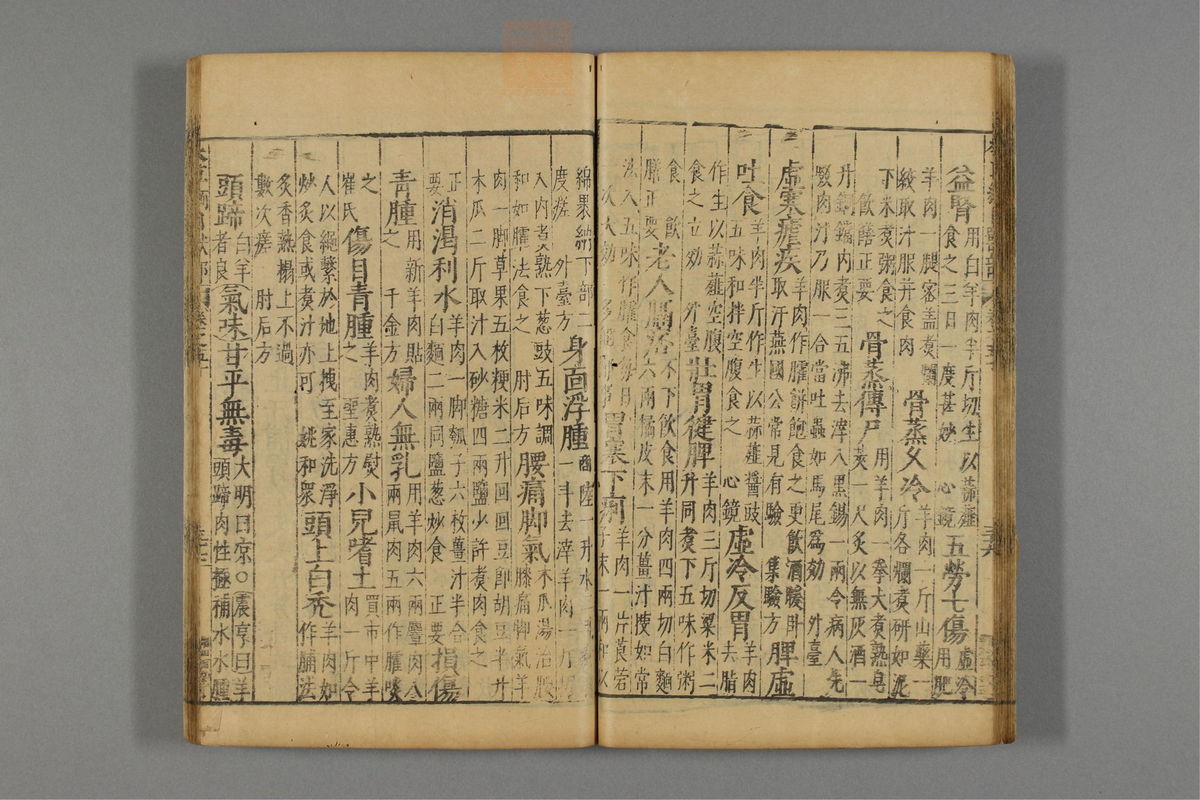 益腎用白羊肉半斤切生以蒜薤食之三日一度甚妙 心鏡 五勞七傷虛冷用肥
羊肉一腿密蓋煮爛絞取汁服并食肉 骨蒸久冷羊肉一斤山藥一斤各爛煮研如泥
下米煮粥食之飲饍正要 骨蒸傳尸用羊肉一拳大煮熟皂莢一尺炙以無灰酒一
升銅鐺內煮三五沸去滓入黑錫一兩令病人先啜肉汁乃服一合當吐蟲如馬尾爲効 外臺
虛寒瘧疾羊肉作臛餅飽食之更飲酒暖臥取汗燕國公常見有驗 集驗方 脾虛
吐食羊肉半斤作生以蒜薤醬豉五味和拌空腹食之 心鏡 虛冷反胃羊肉去脂
作生以蒜薤空腹食之立効 外臺 壯胃健脾羊肉三斤切粱米二升同煮下五味作粥
食 飲膳正要 老人膈痞不下飲食用羊肉四兩切白麵六兩橘皮末一分薑汁搜如常
法入五味作臛食每日一次大効 多能 胃寒下痢羊肉一片莨菪子末一兩和以
綿裹納下部二度瘥 外臺方 身面浮腫商陸一升水一斗去滓羊肉一斤
入內煮熟下葱豉五味調和如臛法食之 肘后方 腰痛脚氣木瓜湯治腰膝痛脚氣羊
肉一脚草果五枚粳米二升回回豆即胡豆半升木瓜二斤取汁入砂糖四兩鹽少許煮肉食之
正要 消渴利水羊肉一脚瓠子六枚薑汁半合白麵二兩同鹽葱炒食 正要 損傷
青腫用新羊肉貼之 千金方 婦人無乳用羊肉六兩麞肉八兩鼠肉五兩作臛啖
之 崔氏 傷目青腫羊肉煮熟熨之 聖惠方 小兒嗜土買市中羊肉一斤令
人以繩繫於地上拽至家洗淨炒炙食或煮汁亦可 姚和衆 頭上白禿羊肉如作脯法
炙香熱搨上不過數次瘥 肘后方
頭蹄白羊者良 氣味甘平無毒大明曰凉○震亨曰羊頭蹄肉性極補水水腫